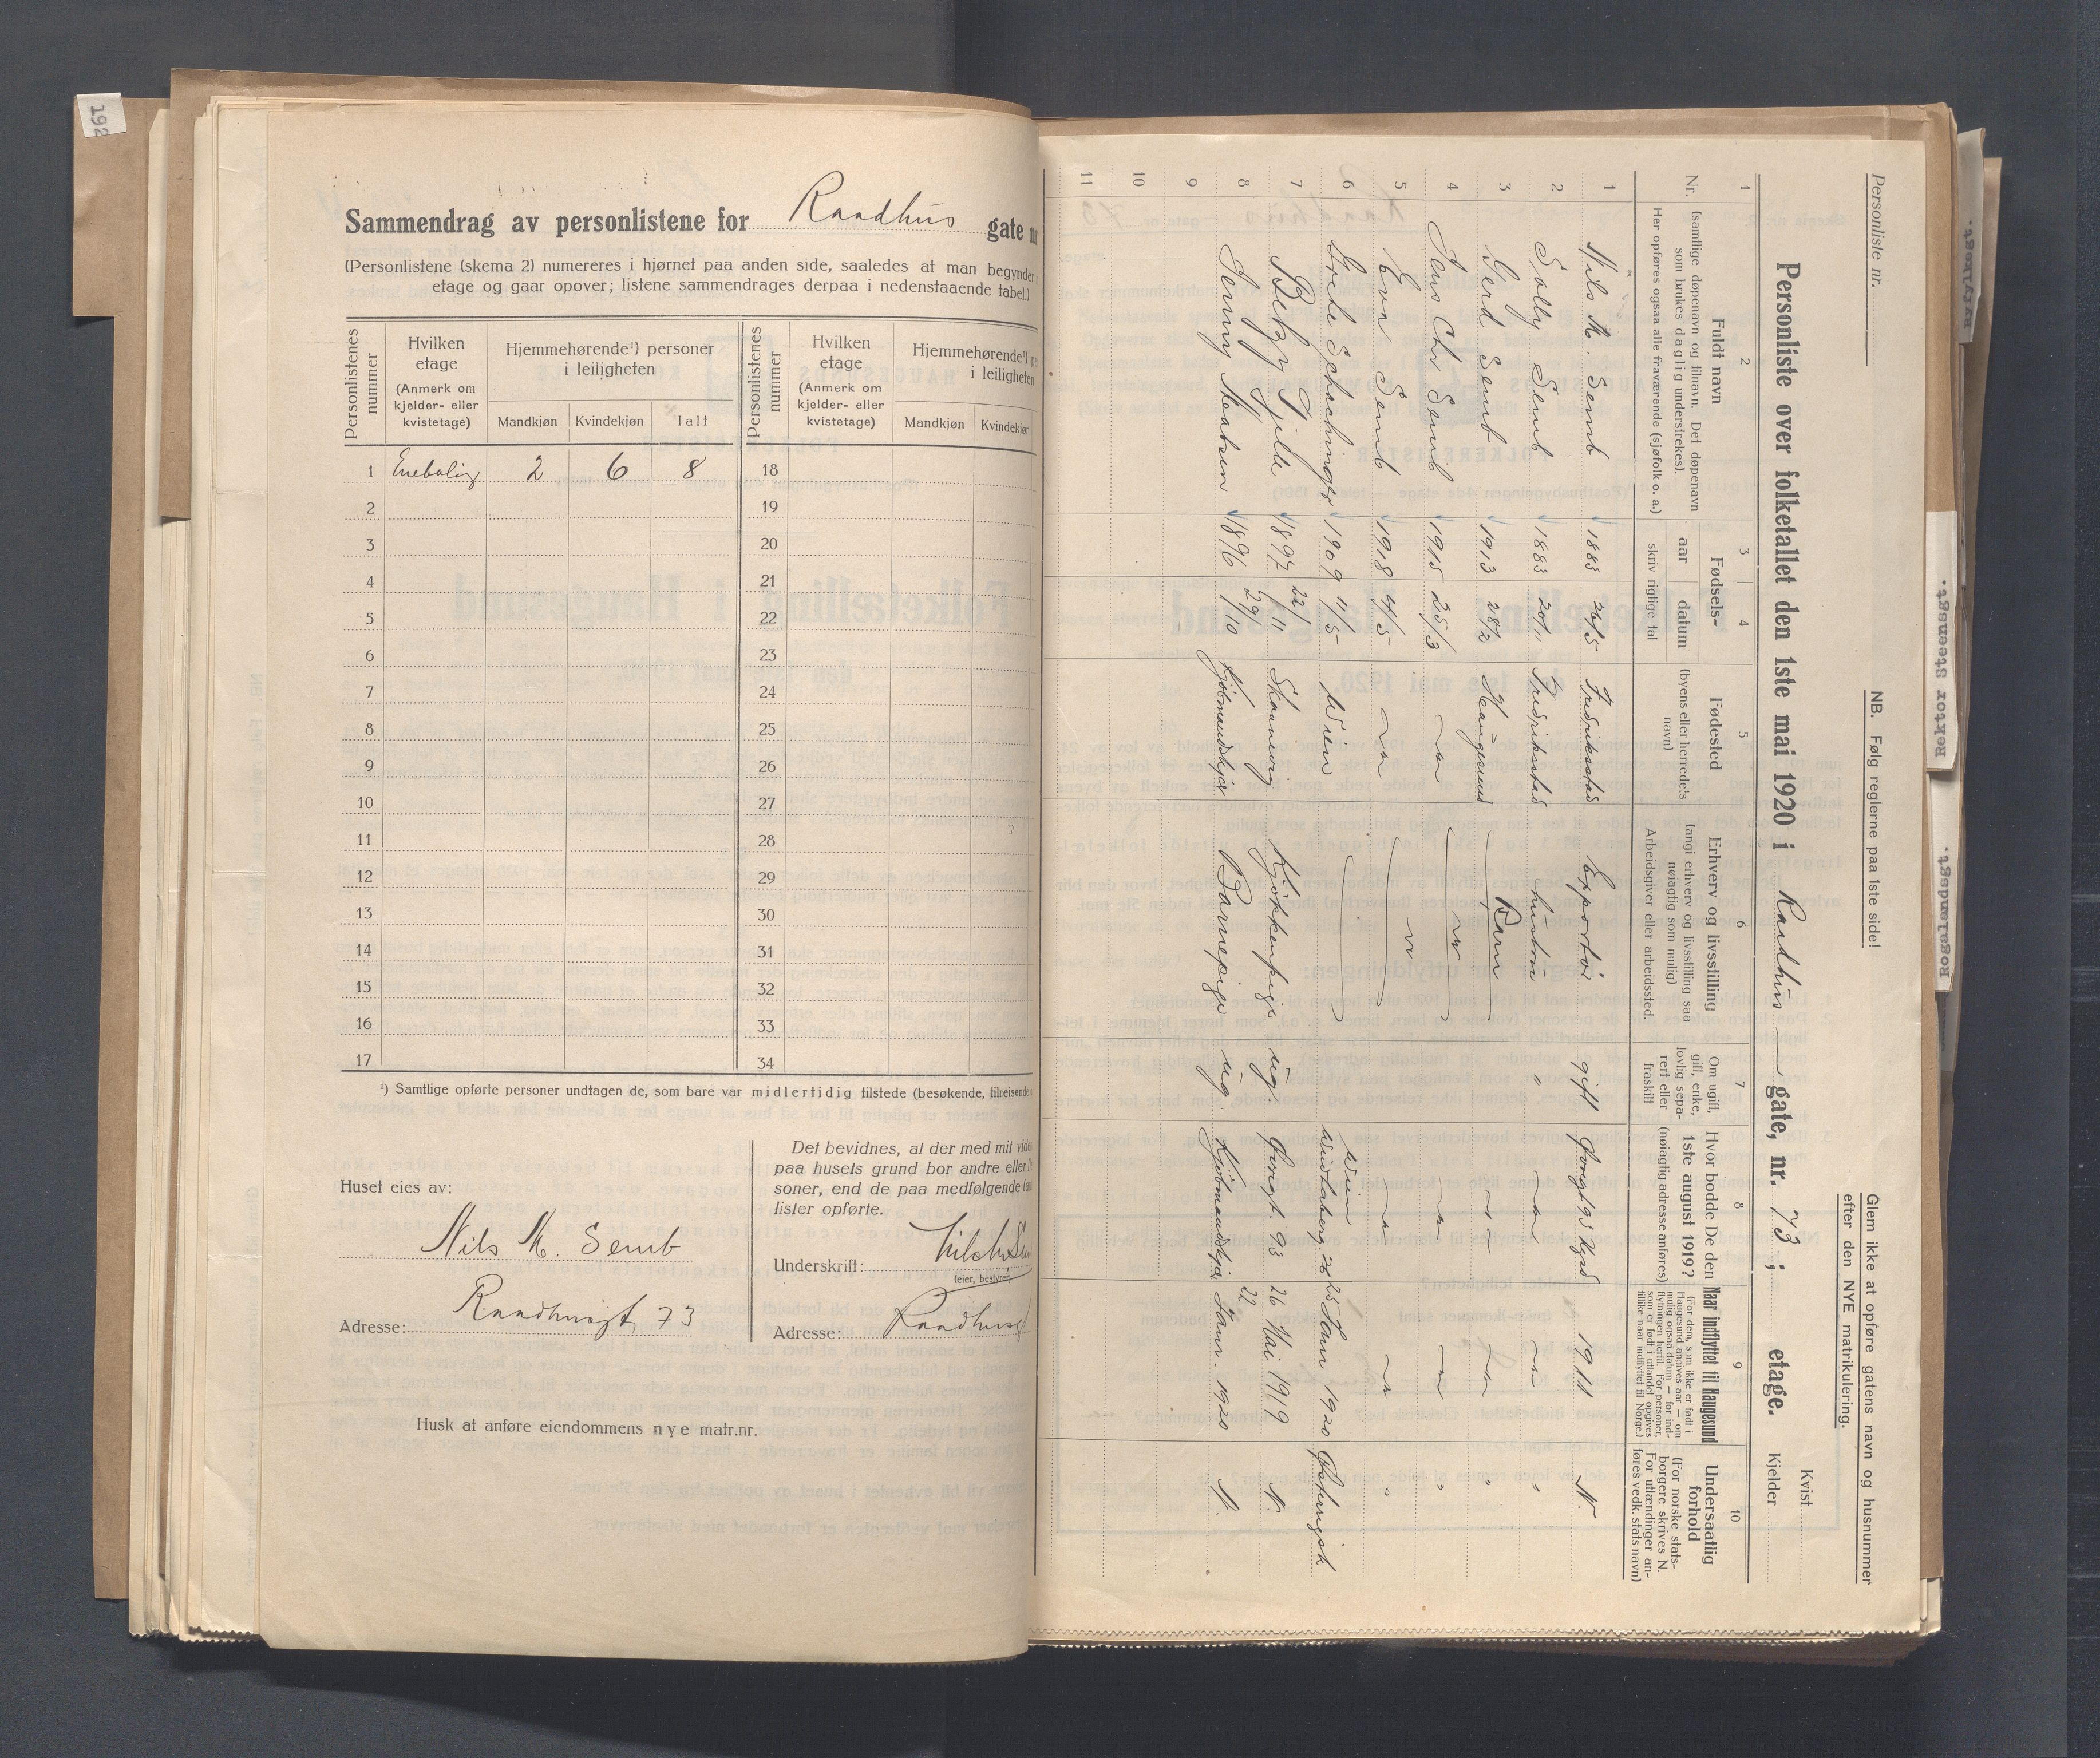 192
Sammendrag av personlistene for Raadhus gate nr
(Personlistene (skema 2) numereres i hjørnet paa anden side, saaledes at man begynder
etage og gaar opover; listene sammendrages derpaa i nedenstaaende tabel.)
Personlistenes nummer | Hvilken etage (Anmerk om kjelder- eller kvistetage) | Hjemmehørende¹) personer i leiligheten | Mandkjøn | Kvindekjøn | Ialt | Personlistenes nummer | Hvilken etage (Anmerk om kjelder- eller kvistetage) | Hjemmehørende¹) i leiligheten | Mandkjøn | Kvindekjøn
1 Enebolig 2 6 8 18
2 19
3 20
4 21
5 22
6 23
7 24
8 25
9 26
10 27
11 28
12 29
13 30
14 31
15 32
16 33
17 34
¹) Samtlige opførte personer undtagen de, som bare var midlertidig tilstede (besøkende, tilreisende
Huset eies av:
Nils M. Semb
Adresse: Raadhusgt 73
Det bevidnes, at der med mit viden
paa husets grund bor andre eller
soner, end de paa medfølgende
lister opførte.
Underskrift:
(eier, bestyrer)
Adresse: Raadhusgt
Husk at anføre eiendommens nye matr.nr.
Personliste nr.
NB. Følg reglerne paa 1ste side!
Glem ikke at opføre gatens navn og husnummer
efter den NYE matrikulering.
Personliste over folketallet den 1ste mai 1920 i Raadhus gate, nr. 73; etage.
Kvist
Kjelder
1 | 2 | 3 | 4 | 5 | 6 | 7 | 8 | 9 | 10
Nr. | Fuldt navn (samtlige døpenavn og tilnavn. Det døpenavn som brukes daglig understrekes). Her opføres ogsaa alle fraværende (sjøfolk o. a.) | Fødsels- aar datum skriv rigtige tal | Fødested (byens eller herredets navn) | Erhverv og livsstilling (angi erhverv og livsstilling saa nøiagtig som mulig) Arbeidsgiver eller arbeidssted. | Om ugift, gift, enke, lovlig separert eller fraskilt | Hvor bodde De den 1ste august 1919? (nøiagtig adresse anføres) | Naar indflyttet til Haugesund (For dem, som ikke er født i Haugesund angives aar — om mulig ogsaa datum — for indflytningen hertil. For personer, som er født i utlandet opgives tillike naar indflyttet til Norge.) | Undersaatlig forhold (For norske statsborgere skrives N. For utlændinger anføres vedk. stats navn)
1 Nils M. Semb 1883 26/5 Fredrikstad Exportør gift 1911 N.
2 Solly Semb 1883 20/1 Fredrikstad hustru " " " "
3 Gerd Semb 1913 28/2 Haugesund Barn " " "
4 Jens Chr Semb 1915 25/3 " " " " "
5 Eva Semb 1918 4/5 " " " " "
6 Grete Schachinger 1909 11/5 Wien Wien 25 Jan 1920 Østerrigsk
7 Betzy Gjilde 1897 22/11 Skaanevig Kjøkkenpige ug. 93 26 Mai 1919 N.
8 Jenny Madsen 1896 29/10 Barnepige ug. 22 Jann. 1920 N.
9
10
11
Rektor Steensgt.
Rogalandsgt.